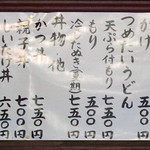 かけ 五〇〇円
つめたいうどん
天ぷら付もり 七五〇円
もり 五〇〇円
冷したぬき（夏期） 七五〇円
丼物 他
かつ丼 七五〇円
親子丼 七〇〇円
しいたけ丼 六五〇円